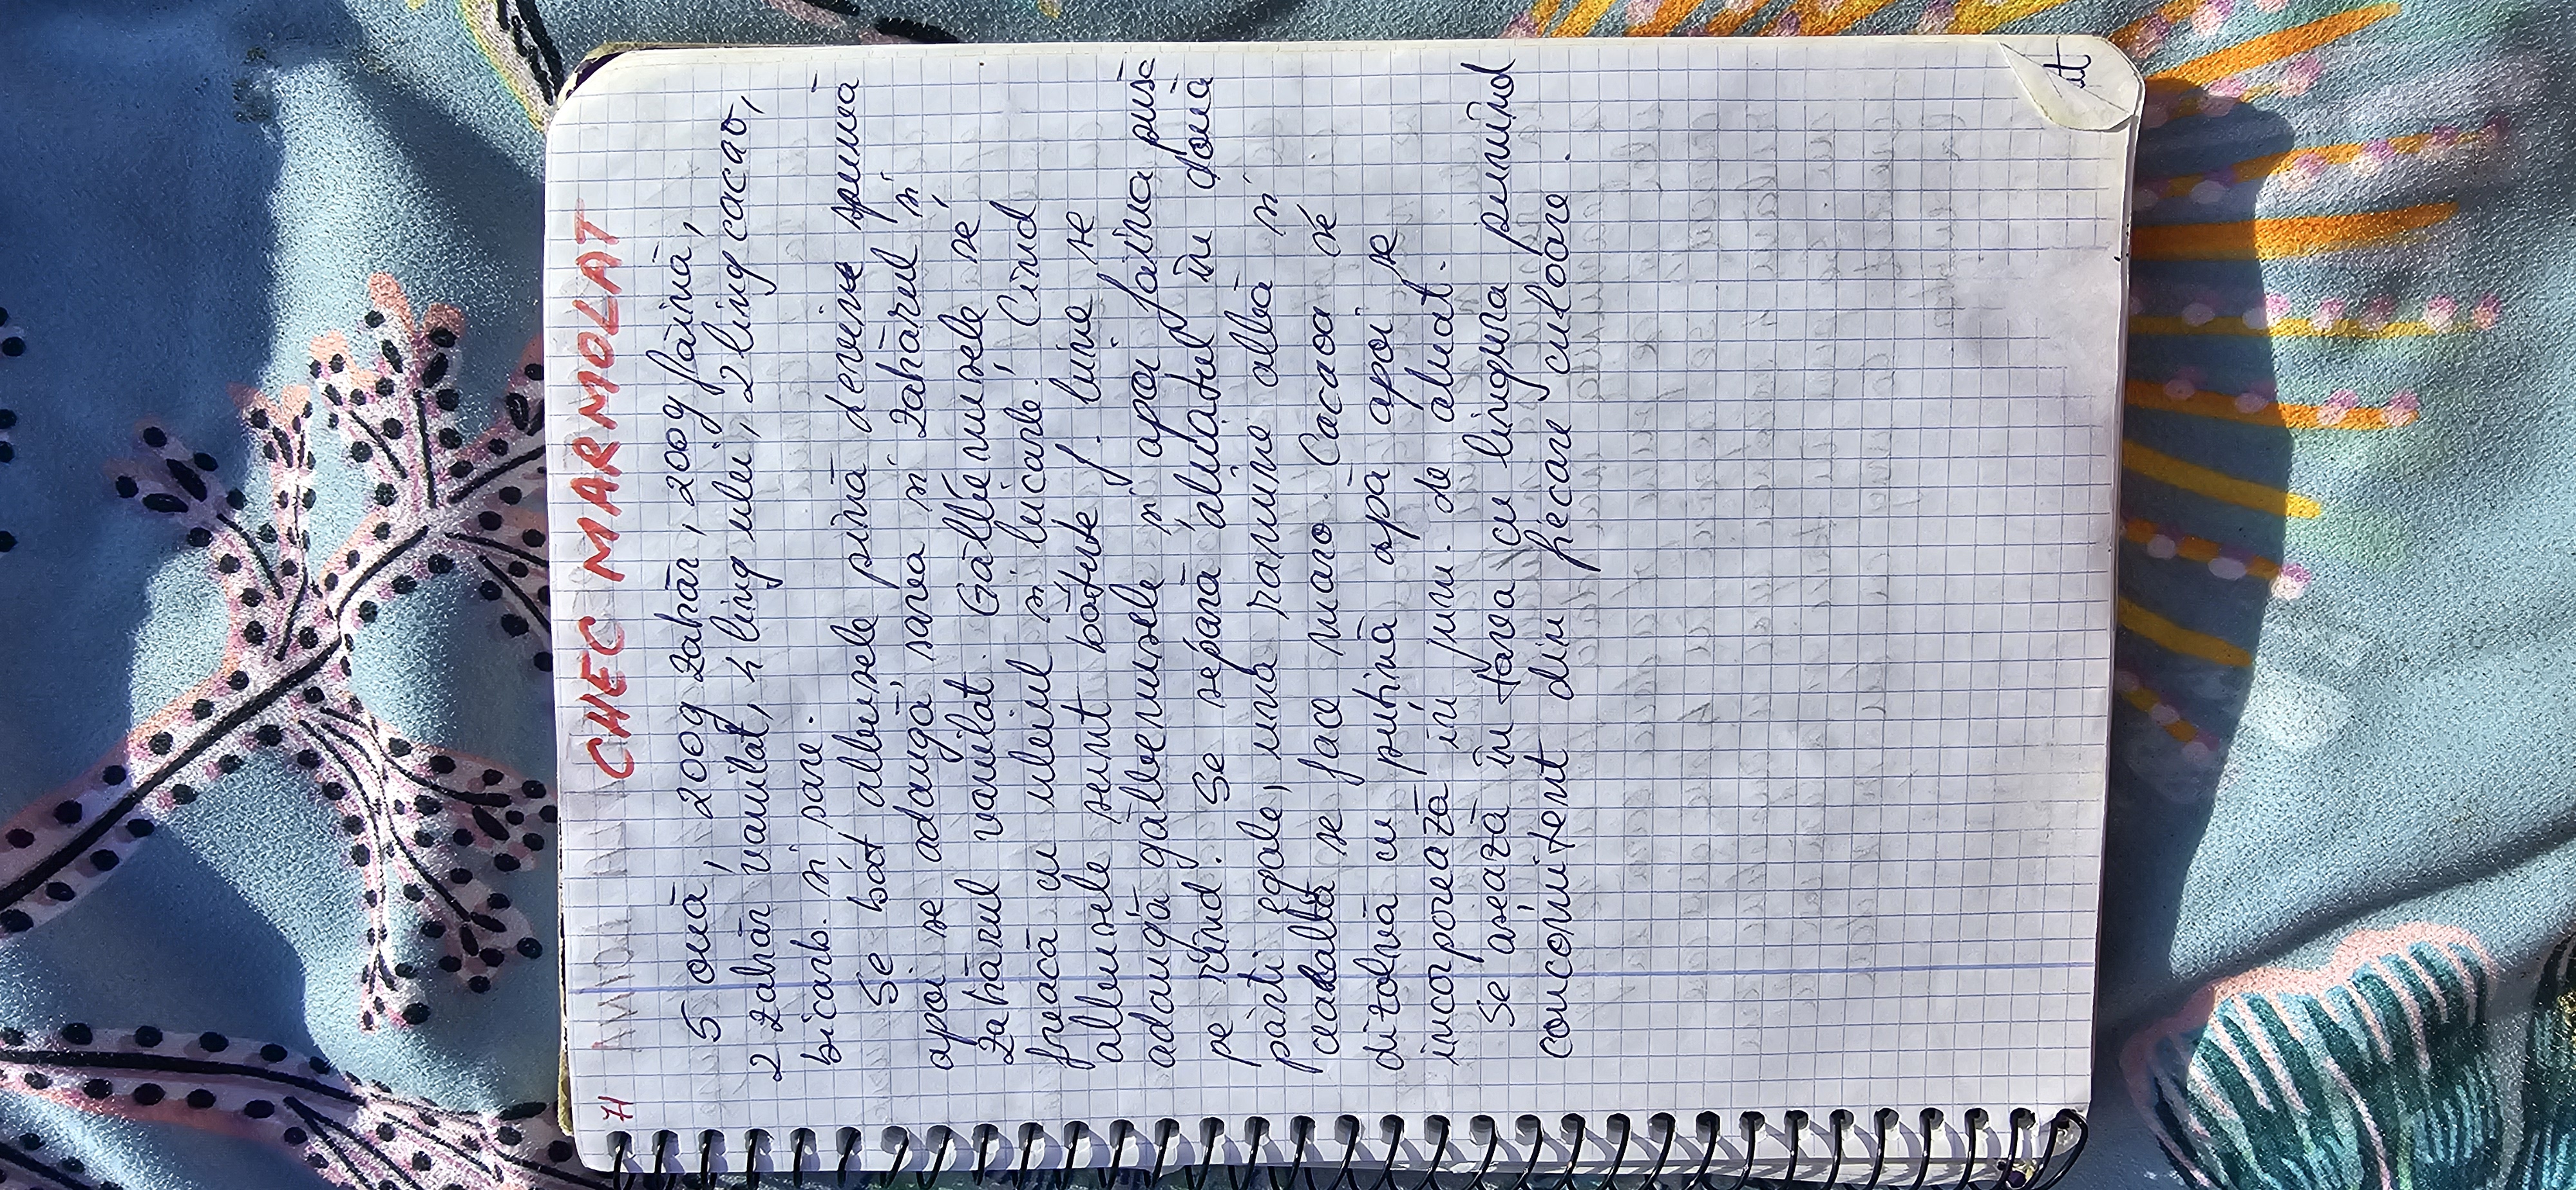 71 CHEC MARMOLAT
5 ouă, 200g zahăr, 200g făină,
2 zahăr vanilat, 4 ling ulei, 2 ling cacao,
bicarb. și sare.
Se bat albușele pînă devine spumă
apoi se adaugă sarea și zahărul și
zahărul vanilat. Gălbenușele se
freacă cu uleiul și bicarb. Cînd
albușele sunt bătute f. bine se
adaugă gălbenușele și apoi făina pusă
pe rînd. Se separă aluatul în două
părți egale, una ramîne albă și
cealaltă se face maro. Cacaoa se
dizolvă cu puțină apă apoi se
incorporează în jum. de aluat.
Se așează în tavă cu lingura punînd
concomitent din fiecare culoare.